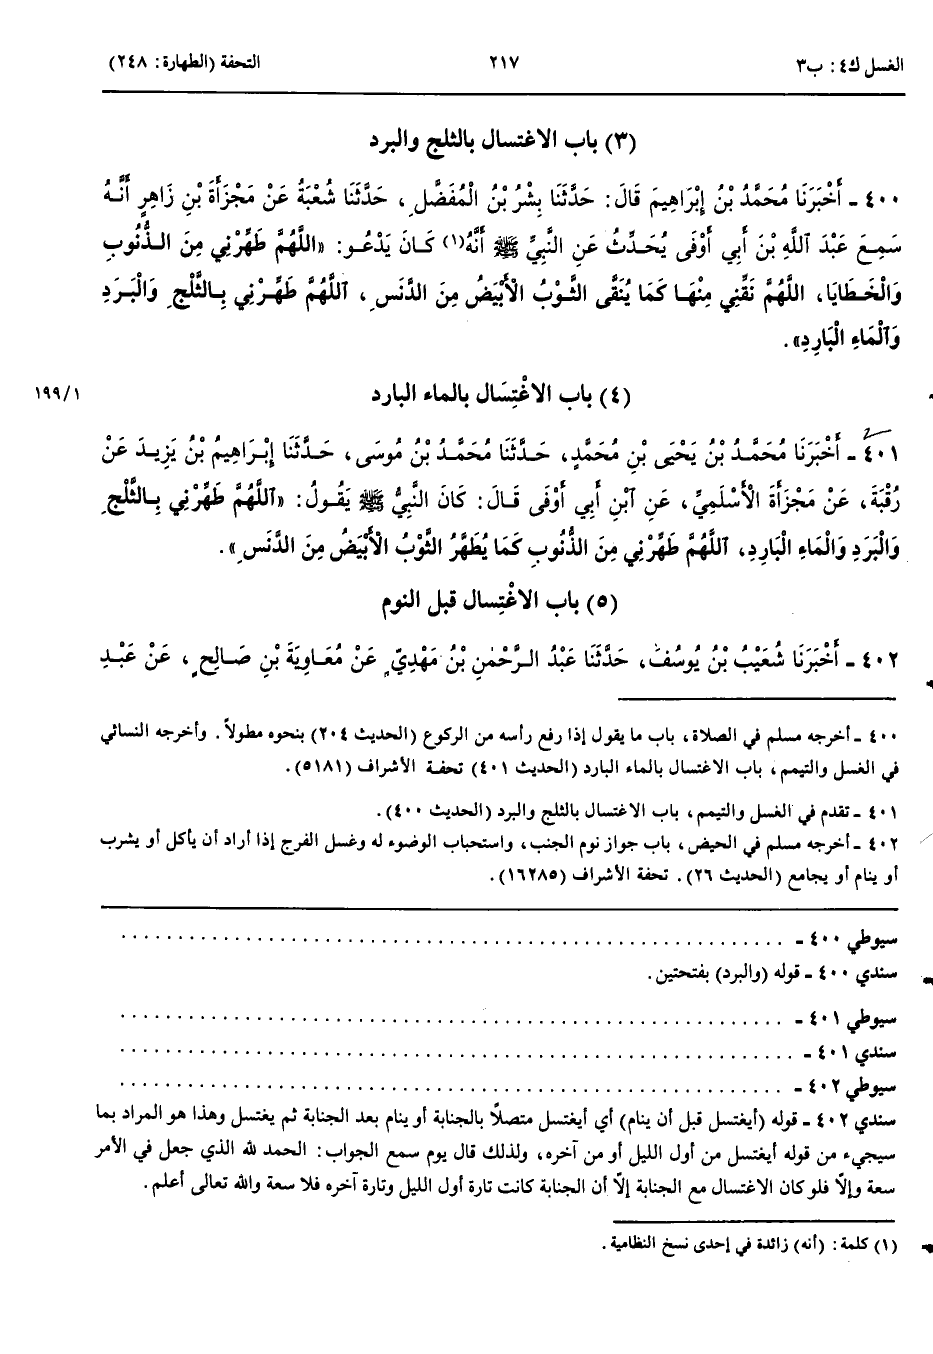 الغسل ك٤: ب٣ ٢١٧ التحفة (الطهارة: ٢٤٨)
(٣) باب الاغتسال بالثلج والبرد
٤٠٠ - أَخْبَرَنَا مُحَمَّدُ بْنُ إِبْرَاهِيمَ قَالَ: حَدَّثَنَا بِشْرُ بْنُ الْمُفَضَّلِ، حَدَّثَنَا شُعْبَةُ عَنْ مَجْزَأَةَ بْنِ زَاهِرٍ أَنَّهُ
سَمِعَ عَبْدَ اللَّهِ بْنَ أَبِي أَوْفَى يُحَدِّثُ عَنِ النَّبِيِّ ﷺ أَنَّهُ(١) كَانَ يَدْعُو: «اللَّهُمَّ طَهِّرْنِي مِنَ الذُّنُوبِ
وَالْخَطَايَا، اللَّهُمَّ نَقِّنِي مِنْهَا كَمَا يُنَقَّى الثَّوْبُ الْأَبْيَضُ مِنَ الدَّنَسِ، ٱللَّهُمَّ طَهِّرْنِي بِالثَّلْجِ وَالْبَرَدِ
وَٱلْمَاءِ الْبَارِدِ».
(٤) باب الاغْتِسَال بالماء البارد ١٩٩/١
٤٠١ - أَخْبَرَنَا مُحَمَّدُ بْنُ يَحْيَى بْنِ مُحَمَّدٍ، حَدَّثَنَا مُحَمَّدُ بْنُ مُوسَى، حَدَّثَنَا إِبْرَاهِيمُ بْنُ يَزِيدَ عَنْ
رُقْبَةَ، عَنْ مَجْزَأَةَ الْأَسْلَمِيِّ، عَنِ ٱبْنِ أَبِي أَوْفَى قَالَ: كَانَ النَّبِيُّ ﷺ يَقُولُ: «ٱللَّهُمَّ طَهِّرْنِي بِالثَّلْجِ
وَالْبَرَدِ وَالْمَاءِ الْبَارِدِ، ٱللَّهُمَّ طَهِّرْنِي مِنَ الذُّنُوبِ كَمَا يُطَهَّرُ الثَّوْبُ الْأَبْيَضُ مِنَ الدَّنَسِ».
(٥) باب الاغْتِسال قبل النوم
٤٠٢ - أَخْبَرَنَا شُعَيْبُ بْنُ يُوسُفَ، حَدَّثَنَا عَبْدُ الرَّحْمٰنِ بْنُ مَهْدِيٍّ عَنْ مُعَاوِيَةَ بْنِ صَالِحٍ، عَنْ عَبْدِ
٤٠٠ - أخرجه مسلم في الصلاة، باب ما يقول إذا رفع رأسه من الركوع (الحديث ٢٠٤) بنحوه مطولاً. وأخرجه النسائي
في الغسل والتيمم، باب الاغتسال بالماء البارد (الحديث ٤٠١) تحفة الأشراف (٥١٨١).
٤٠١ - تقدم في الغسل والتيمم، باب الاغتسال بالثلج والبرد (الحديث ٤٠٠).
٤٠٢ - أخرجه مسلم في الحيض، باب جواز نوم الجنب، واستحباب الوضوء له وغسل الفرج إذا أراد أن يأكل أو يشرب
أو ينام أو يجامع (الحديث ٢٦). تحفة الأشراف (١٦٢٨٥).
سيوطي ٤٠٠ - ..........
سندي ٤٠٠ - قوله (والبرد) بفتحتين.
سيوطي ٤٠١ - ..........
سندي ٤٠١ - ..........
سيوطي ٤٠٢ - ..........
سندي ٤٠٢ - قوله (أيغتسل قبل أن ينام) أي أيغتسل متصلاً بالجنابة أو ينام بعد الجنابة ثم يغتسل وهذا هو المراد بما
سيجيء من قوله أيغتسل من أول الليل أو من آخره، ولذلك قال يوم سمع الجواب: الحمد لله الذي جعل في الأمر
سعة وإلاّ فلو كان الاغتسال مع الجنابة إلاّ أن الجنابة كانت تارة أول الليل وتارة آخره فلا سعة والله تعالى أعلم.
(١) كلمة: (أنه) زائدة في إحدى نسخ النظامية.